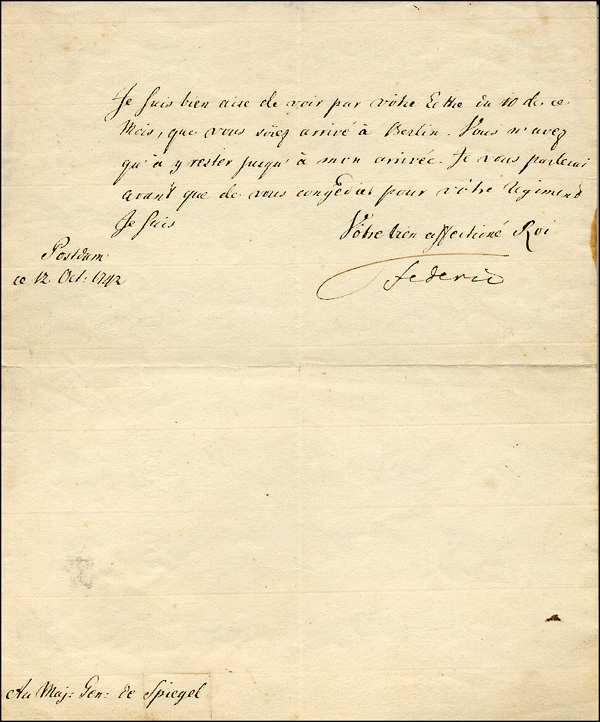 Je suis bien aise de voir par vôtre lettre du 10 de ce
Mois, que vous soiez arrivé à Berlin. Vous n'avez
qu'à y rester jusqu'à mon arrivée. Je vous parlerai
avant que de vous congédier pour vôtre Regiment
Je suis
Vôtre bien affectioné Roi
Potsdam
ce 12. Oct: 1742
Federic
Au Maj: Gen: de Spiegel